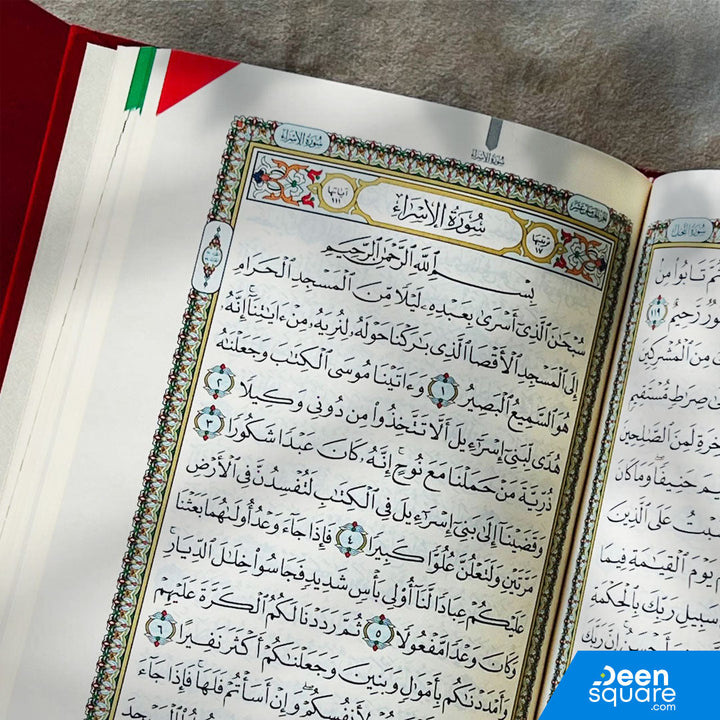 سُورَةُ الإِسْرَاءِ
سُورَةُ الإِسْرَاءِ
الجزء الخامس عشر
ترتيبها ١٧
سُورَةُ الإِسْرَاءِ
آياتها ١١١
بِسْمِ ٱللَّهِ ٱلرَّحْمَٰنِ ٱلرَّحِيمِ
سُبْحَٰنَ ٱلَّذِىٓ أَسْرَىٰ بِعَبْدِهِۦ لَيْلًا مِّنَ ٱلْمَسْجِدِ ٱلْحَرَامِ
إِلَى ٱلْمَسْجِدِ ٱلْأَقْصَا ٱلَّذِى بَٰرَكْنَا حَوْلَهُۥ لِنُرِيَهُۥ مِنْ ءَايَٰتِنَآ إِنَّهُۥ
هُوَ ٱلسَّمِيعُ ٱلْبَصِيرُ ١ وَءَاتَيْنَا مُوسَى ٱلْكِتَٰبَ وَجَعَلْنَٰهُ
هُدًى لِّبَنِىٓ إِسْرَٰٓءِيلَ أَلَّا تَتَّخِذُوا۟ مِن دُونِى وَكِيلًا ٢
ذُرِّيَّةَ مَنْ حَمَلْنَا مَعَ نُوحٍ إِنَّهُۥ كَانَ عَبْدًا شَكُورًا ٣
وَقَضَيْنَآ إِلَىٰ بَنِىٓ إِسْرَٰٓءِيلَ فِى ٱلْكِتَٰبِ لَتُفْسِدُنَّ فِى ٱلْأَرْضِ
مَرَّتَيْنِ وَلَتَعْلُنَّ عُلُوًّا كَبِيرًا ٤ فَإِذَا جَآءَ وَعْدُ أُولَىٰهُمَا بَعَثْنَا
عَلَيْكُمْ عِبَادًا لَّنَآ أُو۟لِى بَأْسٍ شَدِيدٍ فَجَاسُوا۟ خِلَٰلَ ٱلدِّيَارِ
وَكَانَ وَعْدًا مَّفْعُولًا ٥ ثُمَّ رَدَدْنَا لَكُمُ ٱلْكَرَّةَ عَلَيْهِمْ
وَأَمْدَدْنَٰكُم بِأَمْوَٰلٍ وَبَنِينَ وَجَعَلْنَٰكُمْ أَكْثَرَ نَفِيرًا ٦
لِأَنفُسِكُمْ وَإِنْ أَسَأْتُمْ فَلَهَا فَإِذَا جَآءَ
ٱلْمَسْجِدَ
سُورَةُ النَّحْلِ
تَابُوا۟ مِنۢ
رَّحِيمٌ ١١٩
مِنَ ٱلْمُشْرِكِينَ
صِرَٰطٍ مُّسْتَقِيمٍ
لَمِنَ ٱلصَّٰلِحِينَ
حَنِيفًا وَمَا كَانَ
عَلَى ٱلَّذِينَ
يَوْمَ ٱلْقِيَٰمَةِ فِيمَا
سَبِيلِ رَبِّكَ بِٱلْحِكْمَةِ
أَحْسَنُ إِنَّ رَبَّكَ
Deen
square
.com